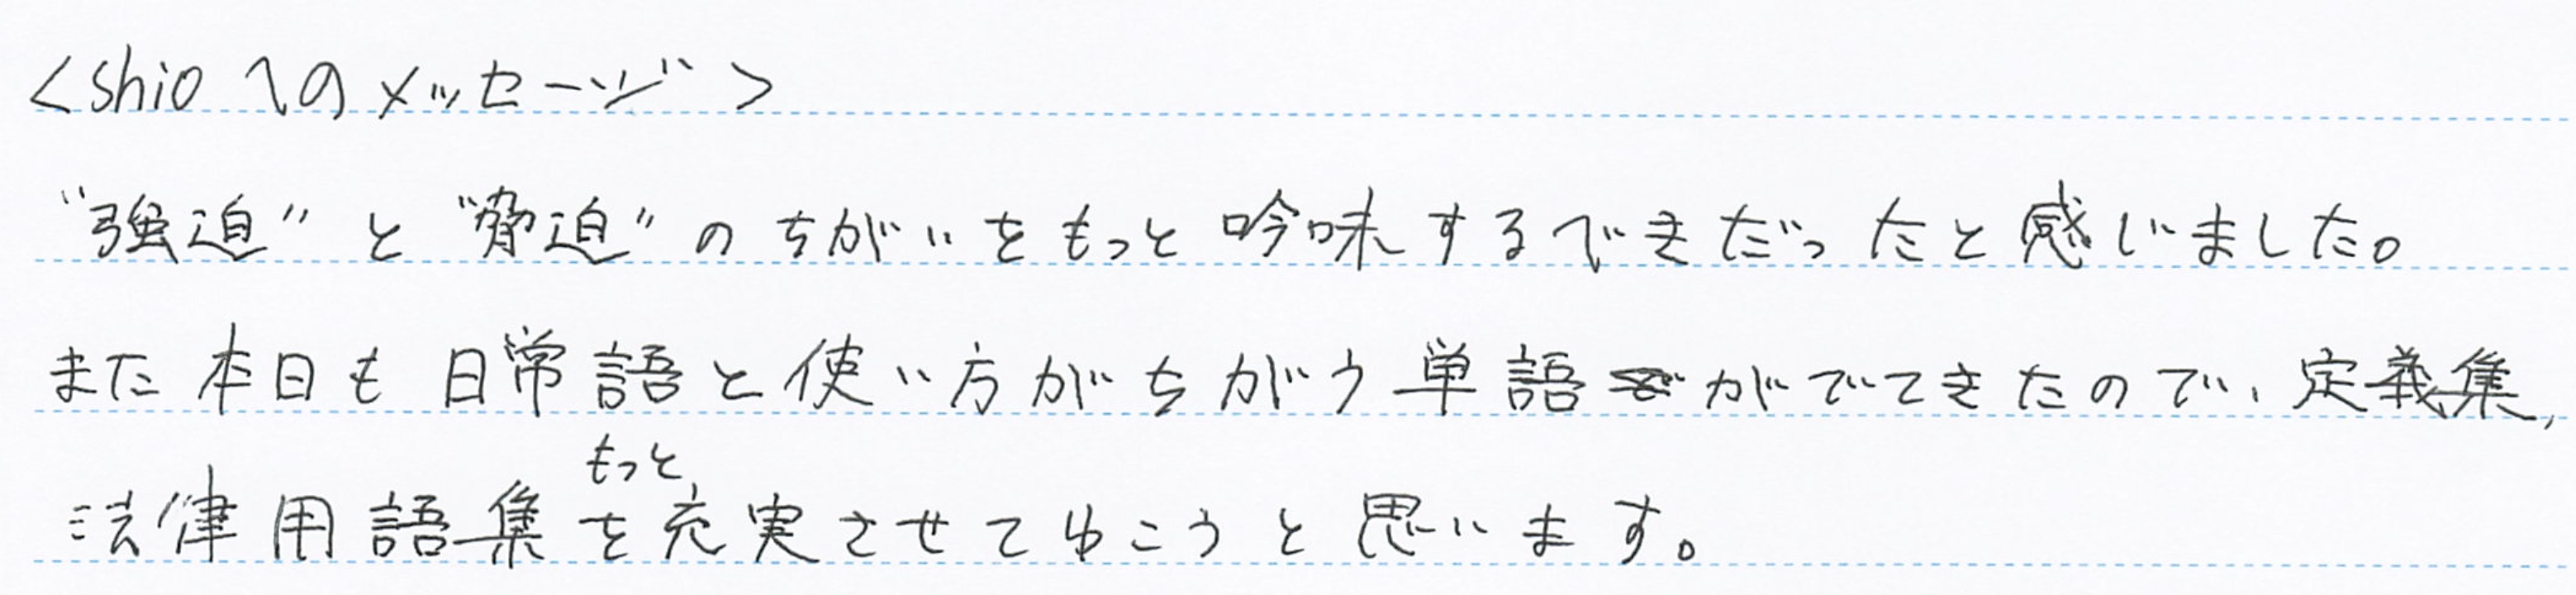 <shioへのメッセージ>
"強迫"と"脅迫"のちがいをもっと吟味するできだったと感じました。
また本日も日常語と使い方がちがう単語がでてきたので、定義集,
もっと
法律用語集を充実させてゆこうと思います。